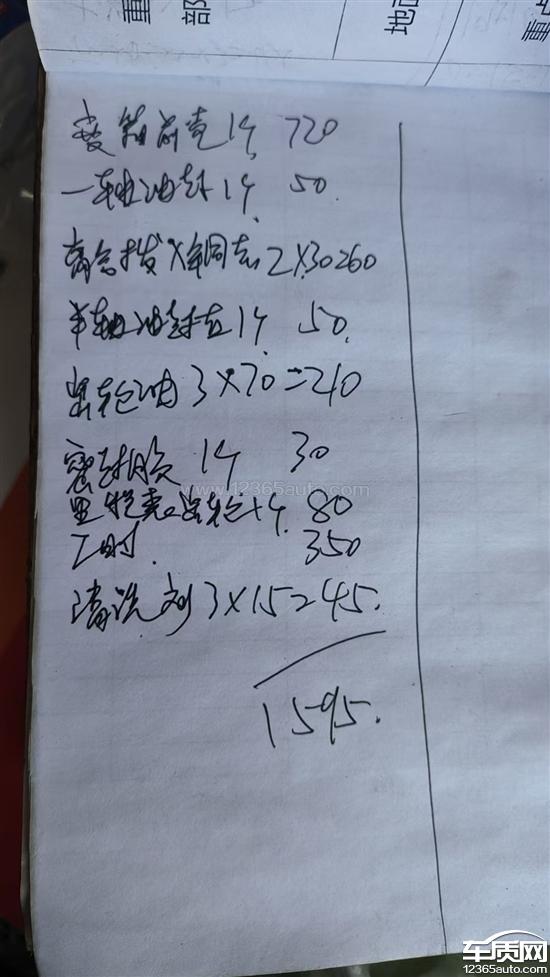 部
变箱前壳1个 720
一轴油封1个 50.
离合拨叉铜套 2×30=60
半轴油封左1个 50.
齿轮油 3×70=210
密封胶 1个 30
里程表齿轮1个 80
工时. 350
清洗剂 3×15=45.
1595.
www.12365auto.com
车质网
12365auto.com